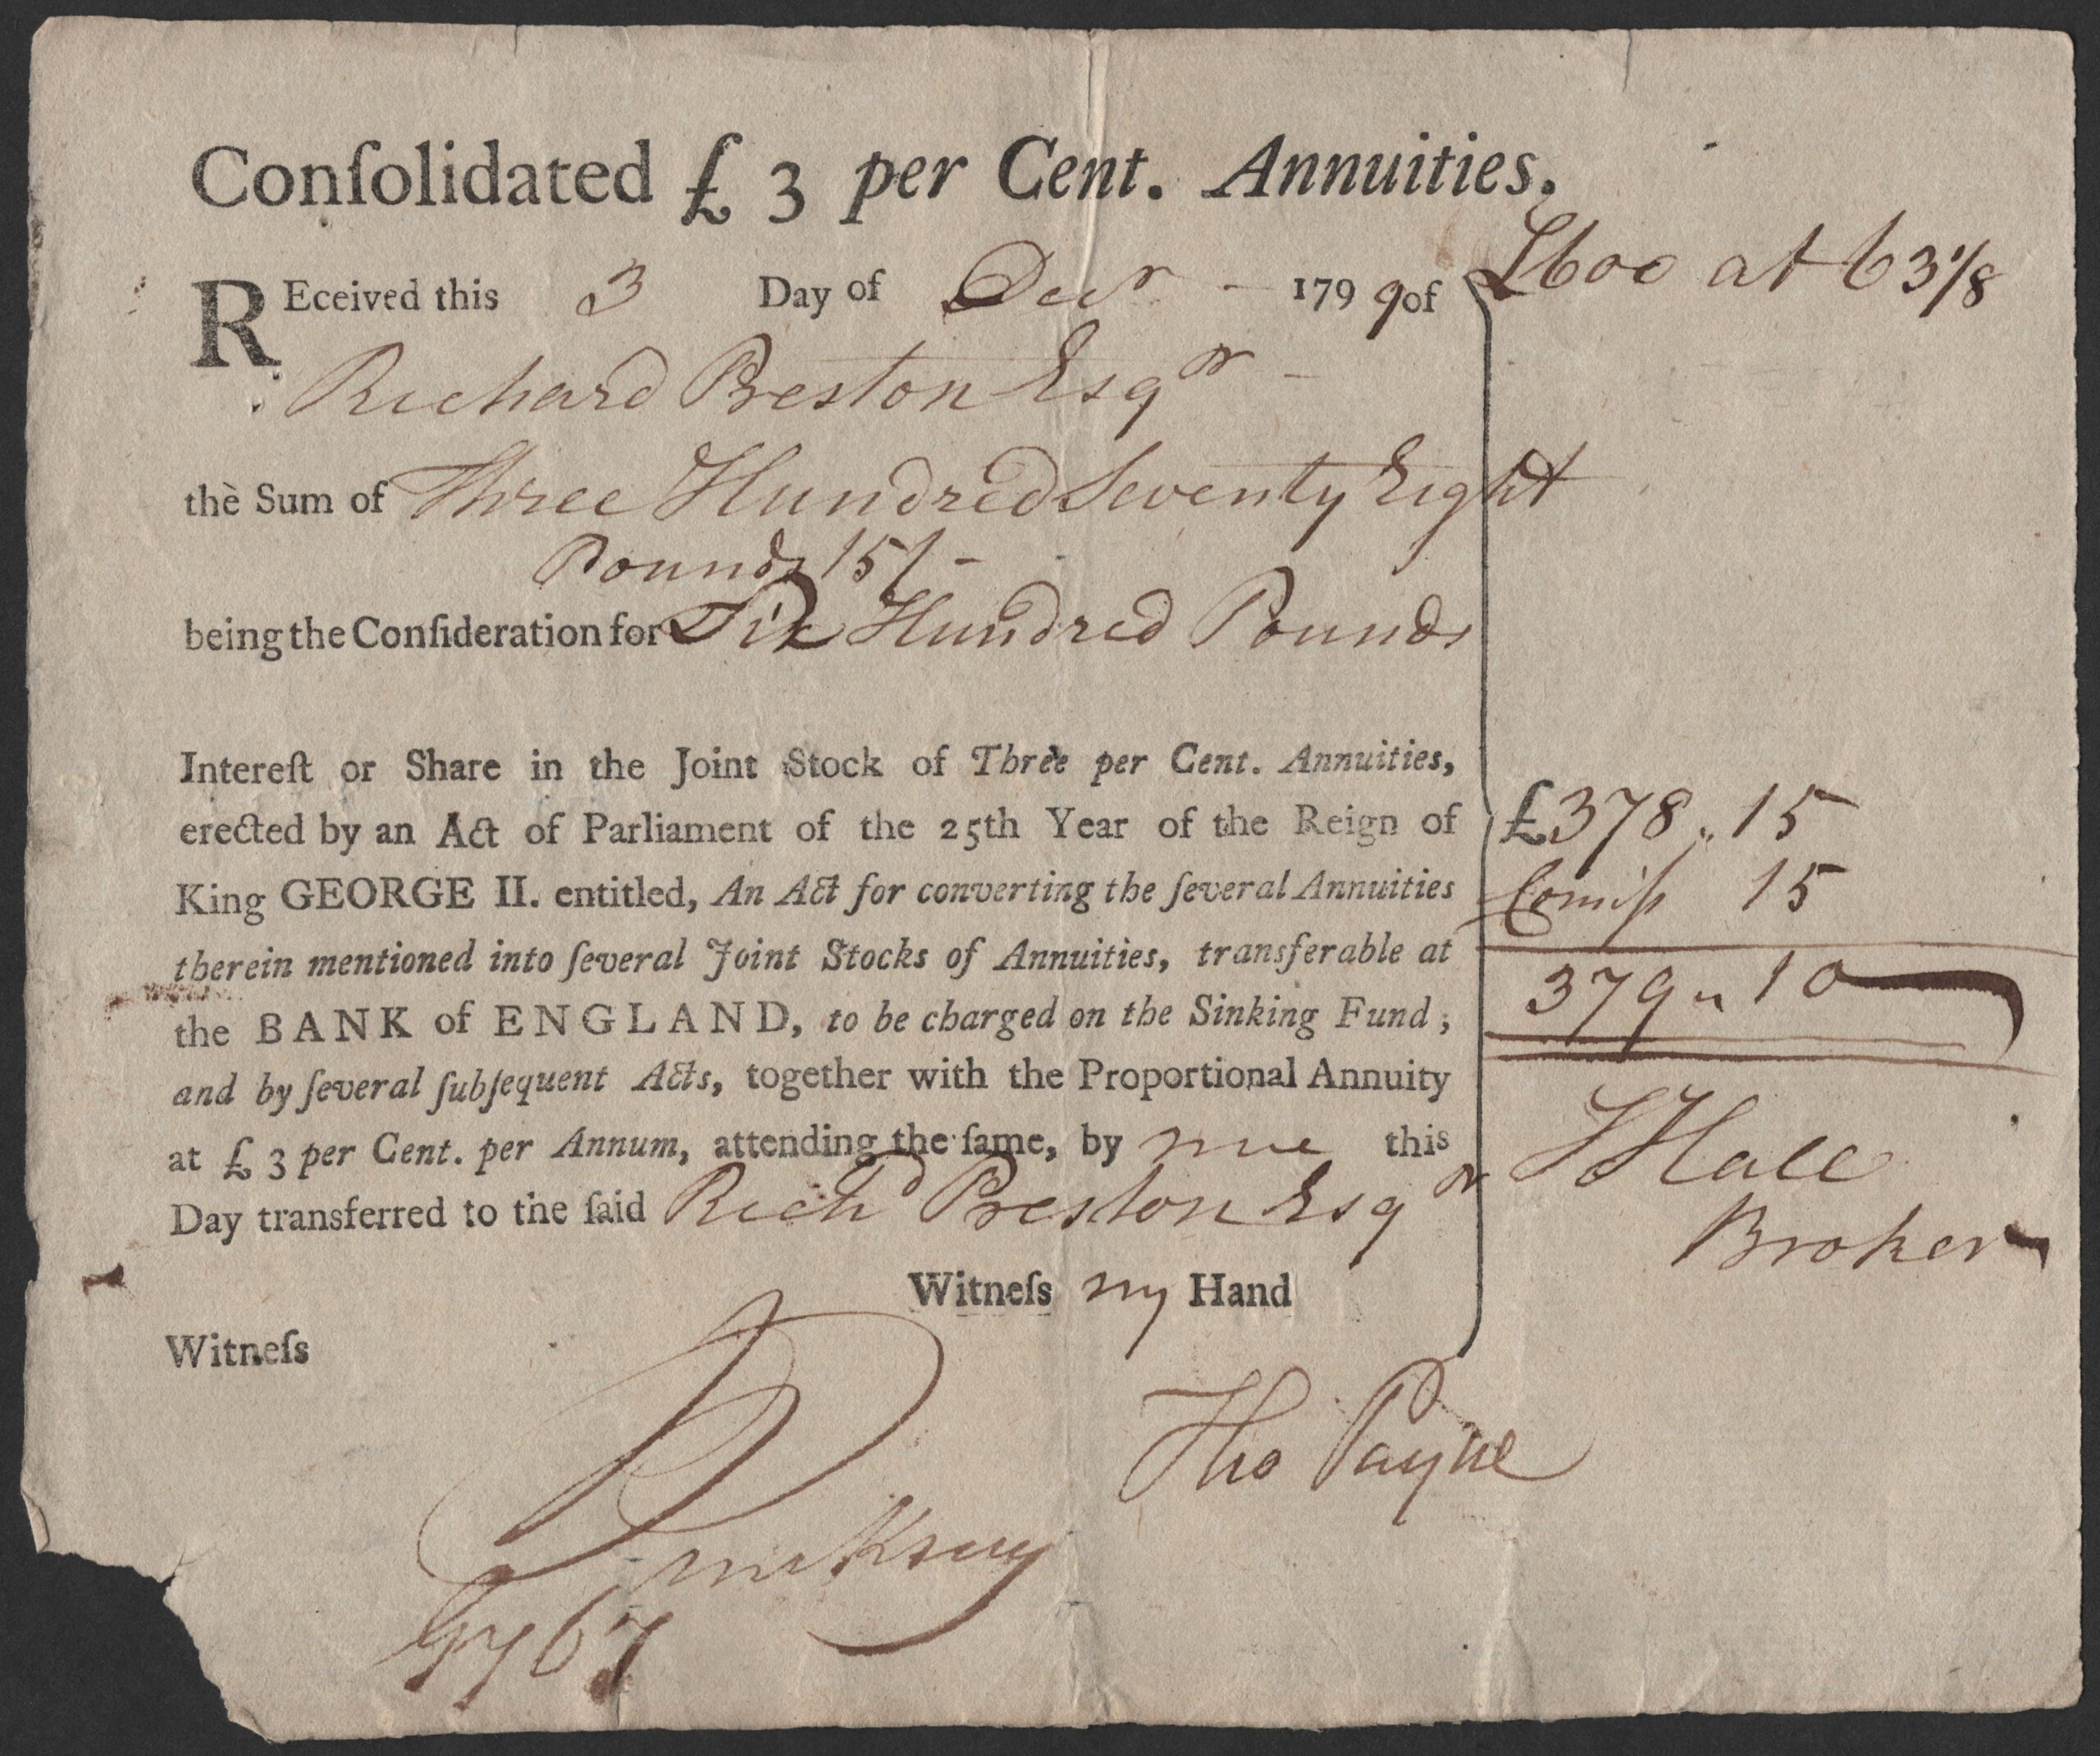 Conſolidated £ 3 per Cent. Annuities.
REceived this 3 Day of Decr. - 1799 of
£600 at 63 1/8
Richard Preston Esqr -
the Sum of Three Hundred Seventy Eight
Pounds 15/-
being the Conſideration for Six Hundred Pounds
Intereſt or Share in the Joint Stock of Three per Cent. Annuities,
erected by an Act of Parliament of the 25th Year of the Reign of
King GEORGE II. entitled, An Act for converting the ſeveral Annuities
therein mentioned into ſeveral Joint Stocks of Annuities, transferable at
the BANK of ENGLAND, to be charged on the Sinking Fund;
and by ſeveral ſubſequent Acts, together with the Proportional Annuity
at £ 3 per Cent. per Annum, attending the ſame, by me this
Day transferred to the ſaid Richd Preston Esqr
£378 „ 15
Comiſs 15
379 „ 10
Hall
Broker
Witneſs my Hand
Witneſs
Tho Payne